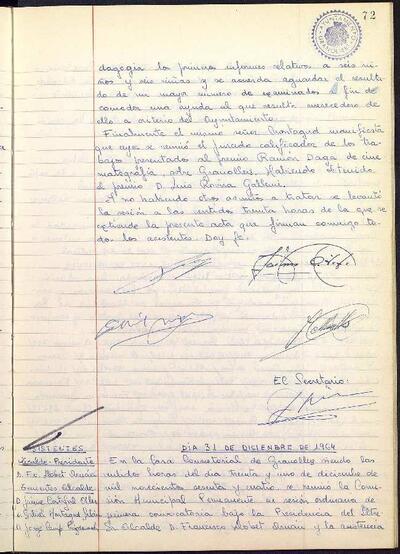 72
AYUNTAMIENTO
dagogía los primeros informes relativos a seis ni-
ños y seis niñas y se acuerda aguardar el resulta-
do de un mayor número de examinados a fin de
conceder una ayuda al que resulte merecedor de
ello a criterio del Ayuntamiento.
Finalmente el mismo señor Montagud manifiesta
que ayer se reunió el Jurado calificador de los tra-
bajos presentados al premio Ramón Daga de cine-
matografía, sobre Granollers. Habiendo obtenido
el premio D. Luis Rovira
Y no habiendo otros asuntos a tratar se levantó
la sesión a las veintidós treinta horas de la que se
extiende la presente acta que firman conmigo to-
dos los asistentes. Doy fe.
El Secretario:
ASISTENTES
DIA 31 DE DICIEMBRE DE 1964
Alcalde-Presidente
En la Casa Consistorial de Granollers siendo las
D. Fco. Llobet
veintidós horas del día treinta y uno de diciembre de
Tenientes Alcalde
mil novecientos sesenta y cuatro, se reune la Co-
misión Municipal Permanente en sesión ordinaria de
primera convocatoria bajo la Presidencia del Iltre.
Sr. Alcalde D. Francisco Llobet y la asistencia